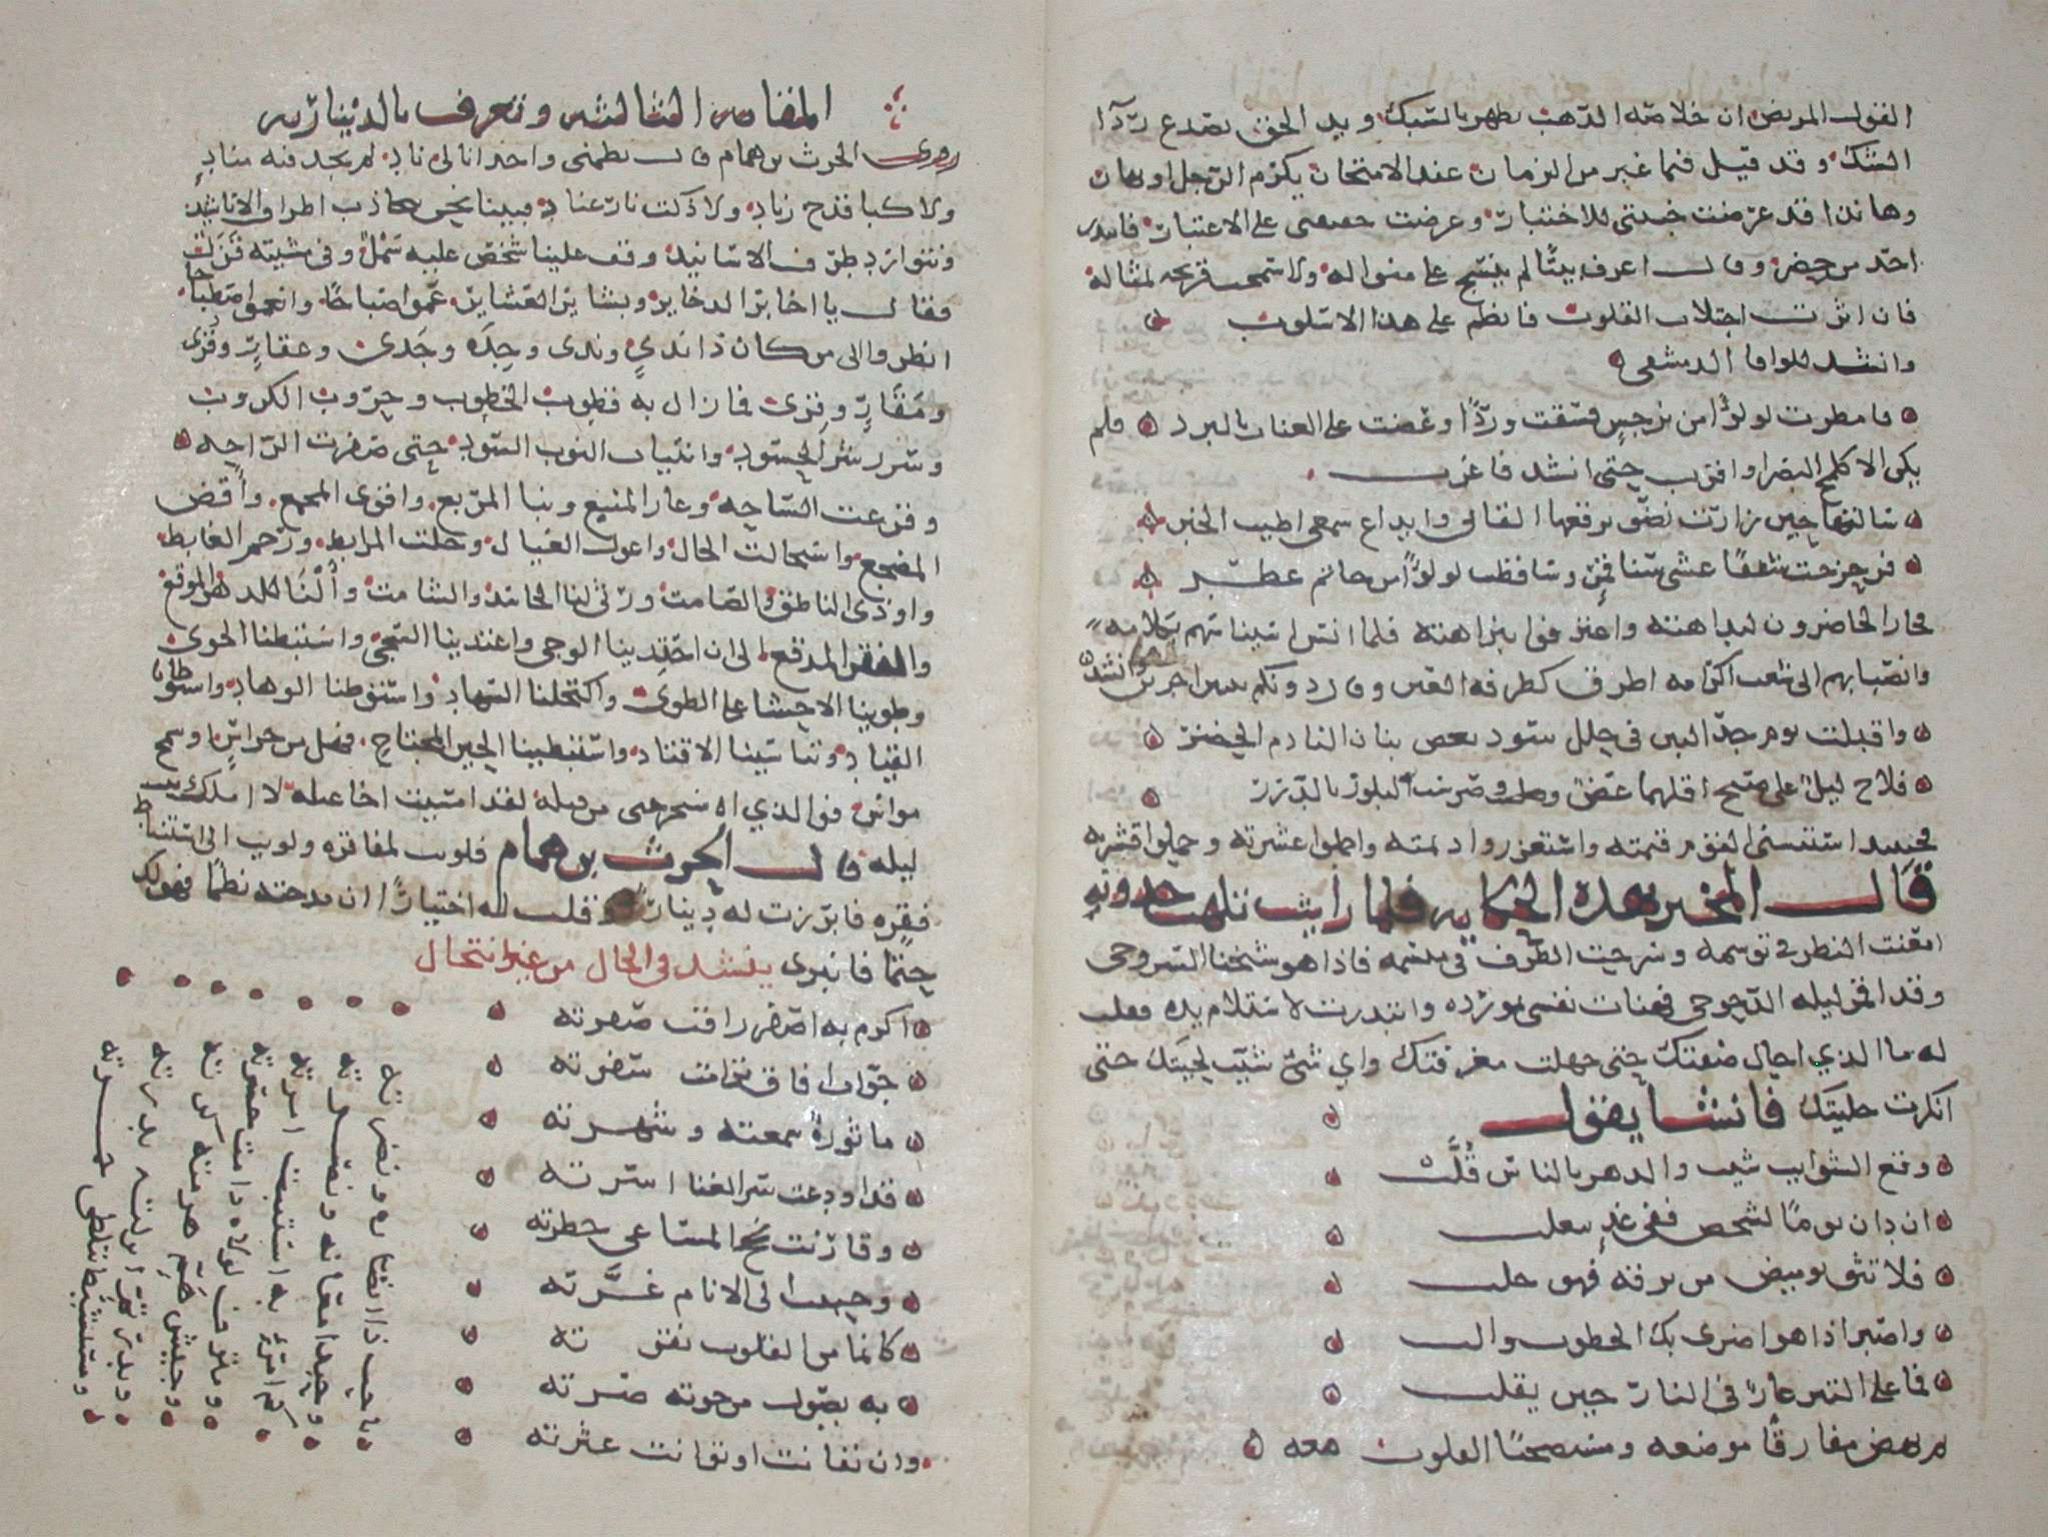 القول المريض ان خلاصة الذهب تظهر بالسبك ويد الحق تصدع ردآ
الشك وقد قيل فيما غبر من الزمان عند الامتحان يكرم الرجل او يهان
وها نذا قد عرضت خبيتي للاختبار وعرضت حقيبتي على الاعتبار فابتدر
احد من حضر وقال اعرف بيتًا لم ينسج على منواله ولا سمحت قريحة لمثاله
فان اثرت اجتلاب القلوب فانظم على هذا الاسلوب
وانشد للواوا الدمشقي
فامطرت لولوًا من نرجس فسقت وردًا وعضت على العناب بالبرد فلم
يكن الا كلمح البصر او اقرب حتى انشد فاغرب
سالتها حين زارت نضو برقعها القاني وايداع سمعي اطيب الخبر
فزحزحت شفقًا غشى سنا قمرٍ وساقطت لولوًا من خاتم عطر
فحار الحاضرون لبداهته واعترفوا بنزاهته فلما انس استيناسهم بكلامه
وانصبابهم الى شعب اكرامه اطرق كطرفة العين وقال دونكم بيتين اخرين وانشد
واقبلت يوم جد البين في حلل سود تعض بنان النادم الحصر
فلاح ليل على صبح اقلهما غصن وضرست البلور بالدرر
فحينيذ استسنى القوم قيمته واستغزروا ديمته واجملوا عشرته وجملوا قشرته
قال المخبر بهذه الحكاية فلما رايت تلهب جذوته
امعنت النظر في توسمه وسرحت الطرف في ميسمه فاذا هو شيخنا السروجي
وقد اقمر ليله الدجوجي فهنات نفسي بمورده وابتدرت لاستلام يده فقلت
له ما الذي احال صفتك حتى جهلت معرفتك واي شي شيب لحيتك حتى
انكرت حليتك فانشا يقول
وقع الشوايب شيب والدهر بالناس قُلَّب
ان دان يومًا لشخص ففي غدٍ يتغلب
فلا تثق بوميض من برقه فهو خلب
واصبر اذا هو اضرى بك الخطوب والب
فما على التبر عار في النار حين يقلب
ثم نهض مفارقًا موضعه ومستصحبًا القلوب معه
المقامة الثالثة وتعرف بالدينارية
روى الحرث بن همام قال نظمني واخدانا لي ناد لم يخب فيه مناد
ولا كبا قدح زناد ولا ذكت نار عناد فبينا نحن نتجاذب اطراف الاناشيد
ونتوارد طرف الاسانيد وقف علينا شخص عليه سمل وفي مشيته قزل
فقال يا اخاير الذخاير وبشاير العشاير عموا صباحًا وانعموا اصطباحا
انظروا الى من كان ذا ندي وندى وجدة وجدى وعقار وقرى
ومقار وقرى فما زال به قطوب الخطوب وحروب الكروب
وشرر شر الحسود وانتياب النوب السود حتى صفرت الراحة
وقرعت الساحة وغار المنبع ونبا المربع واقوى المجمع واقض
المضجع واستحالت الحال واعول العيال وخلت المرابط ورحم الغابط
واودى الناطق والصامت ورثى لنا الحاسد والشامت وأُلنا للدهر الموقع
والفقر المدقع الى ان احتذينا الوجى واغتذينا الشجى واستبطنا الجوى
وطوينا الاحشا على الطوى واكتحلنا السهاد واستوطنا الوهاد واستوطانا
القتاد وتناسينا الاقتاد واستبطينا الحين المجتاح فهل من حر اسٍ او سمح
مواس فوالذي استخرجني من قيلة لقد امسيت اخا عيلة لا املك بيت
ليلة قال الحرث بن همام فلويت لمفاقره ولويت الى استنباط
فقره فابرزت له دينارًا وقلت له اختبارًا ان مدحته نظمًا فهو لك
حتمًا فانبرى ينشد في الحال من غير انتحال
اكرم به اصفر راقت صفرته
جواب افاق ترامت سفرته
ماثورة سمعته وشهرته
قد اودعت سر الغنا اسرته
وقارنت نجح المساعي خطرته
وحببت الى الانام غرَّته
كانما من القلوب نقرته
به يصول من حوته صرته
وان تفانت او توانت عترته
يا حبذا نضاره ونضرته
وحبذا مغناته ونصرته
كم امر به استتبت امرته
ومترف لولاه دامت حسرته
وجيش هم هزمته كرته
وبدر تم انزلته بدرته
ومستشيط تتلظى جمرته